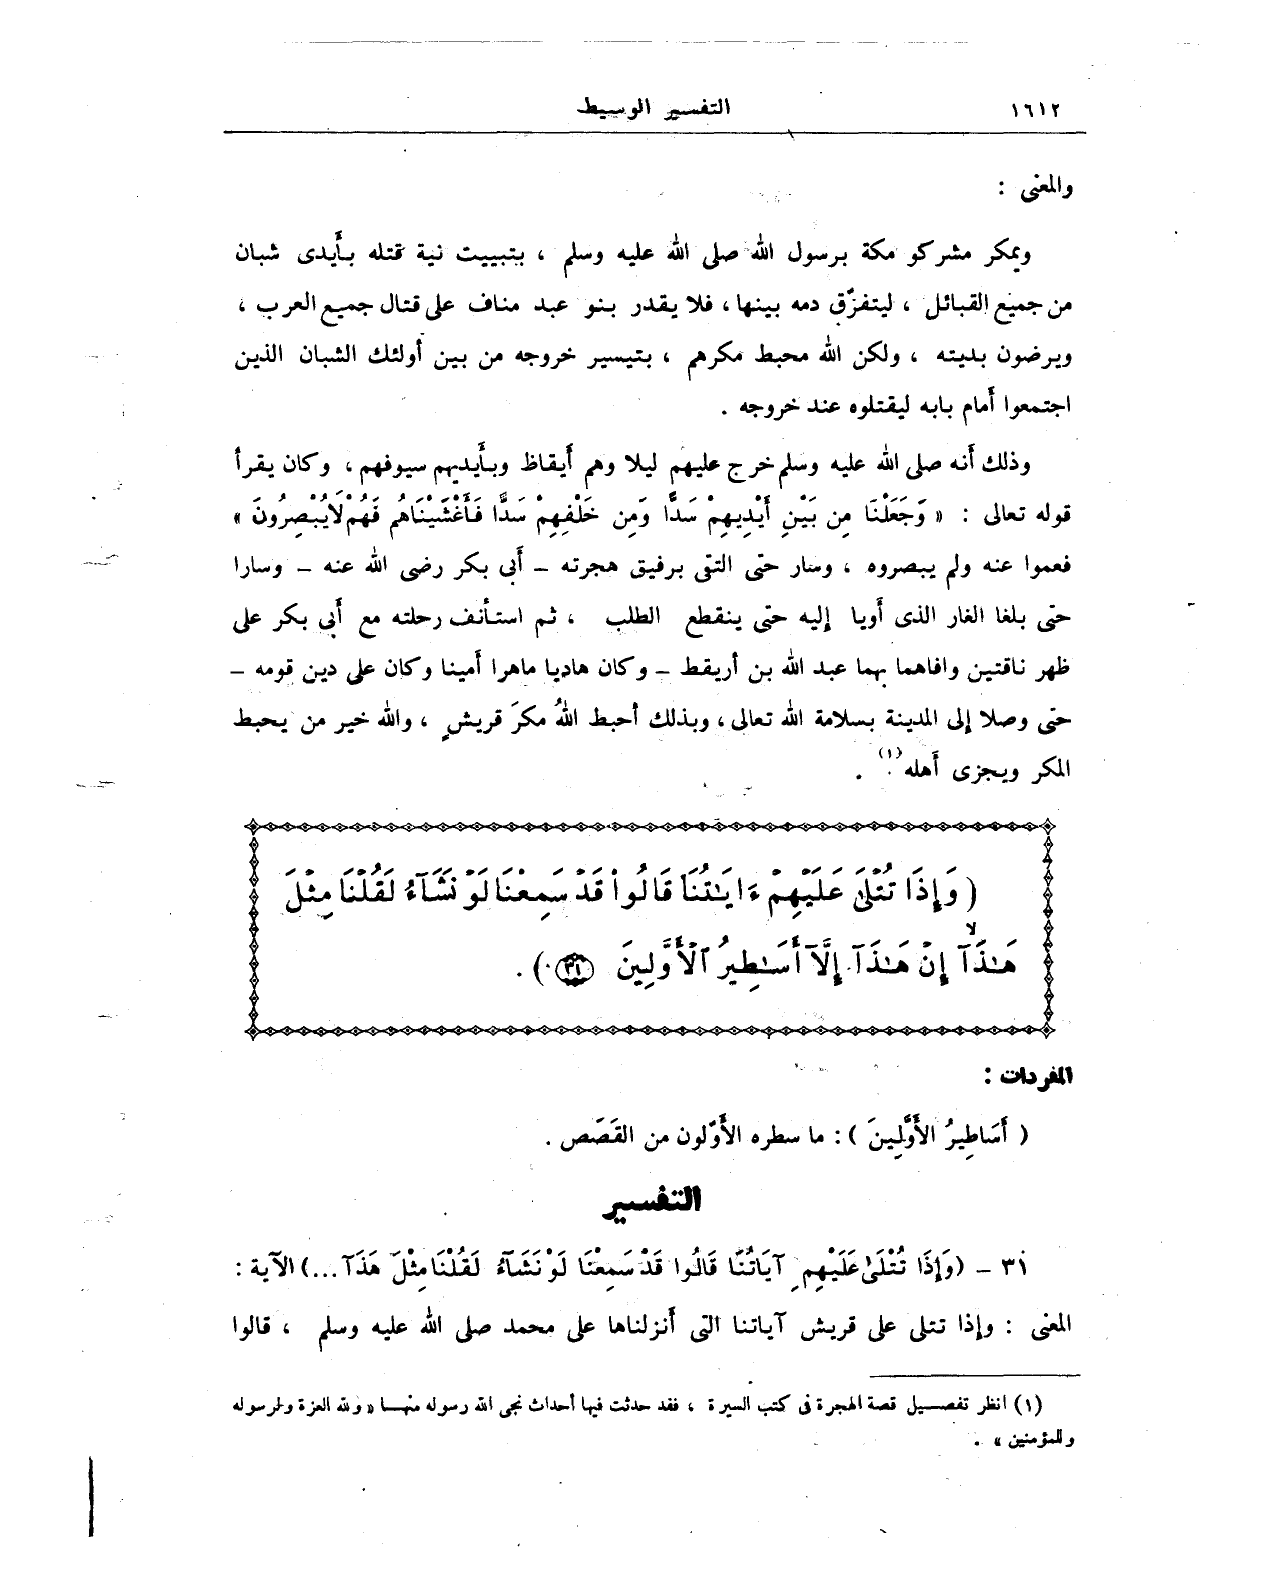 ١٦١٢ التفسير الوسيط
والمعنى :
ويمكر مشركو مكة برسول الله صلى الله عليه وسلم ، بتبييت نية قتله بأيدى شبان
من جميع القبائل ، ليتفرّق دمه بينها ، فلا يقدر بنو عبد مناف على قتال جميع العرب ،
ويرضون بديته ، ولكن الله محبط مكرهم ، بتيسير خروجه من بين أولئك الشبان الذين
اجتمعوا أمام بابه ليقتلوه عند خروجه .
وذلك أنه صلى الله عليه وسلم خرج عليهم ليلا وهم أيقاظ وبأيديهم سيوفهم ، وكان يقرأ
قوله تعالى : « وَجَعَلْنَا مِن بَيْنِ أَيْدِيهِمْ سَدًّا وَمِن خَلْفِهِمْ سَدًّا فَأَغْشَيْنَاهُم فَهُمْ لَايُبْصِرُونَ »
فعموا عنه ولم يبصروه ، وسار حتى التقى برفيق هجرته – أبى بكر رضى الله عنه – وسارا
حتى بلغا الغار الذى أويا إليه حتى ينقطع الطلب ، ثم استأنف رحلته مع أبى بكر على
ظهر ناقتين وافاهما بهما عبد الله بن أريقط – وكان هاديا ماهرا أمينا وكان على دين قومه –
حتى وصلا إلى المدينة بسلامة الله تعالى ، وبذلك أحبط اللهُ مكرَ قريشٍ ، والله خير من يحبط
المكر ويجزى أهله (١) .
( وَإِذَا تُتْلَىٰ عَلَيْهِمْ ءَايَٰتُنَا قَالُوا۟ قَدْ سَمِعْنَا لَوْ نَشَآءُ لَقُلْنَا مِثْلَ
هَٰذَآ ۙ إِنْ هَٰذَآ إِلَّآ أَسَٰطِيرُ ٱلْأَوَّلِينَ ٣١ ) .
المفردات :
( أَسَاطِيرُ الأَوَّلِينَ ) : ما سطره الأوّلون من القَصَص .
التفسير
٣١ – ( وَإِذَا تُتْلَىٰ عَلَيْهِمِ آيَاتُنَا قَالُوا قَدْ سَمِعْنَا لَوْ نَشَآءُ لَقُلْنَا مِثْلَ هَذَآ ... ) الآية :
المعنى : وإذا تتلى على قريش آياتنا التى أنزلناها على محمد صلى الله عليه وسلم ، قالوا
(١) انظر تفصيل قصة الهجرة فى كتب السيرة ، فقد حدثت فيها أحداث نجى الله رسوله منها « ولله العزة ولرسوله
وللمؤمنين » .